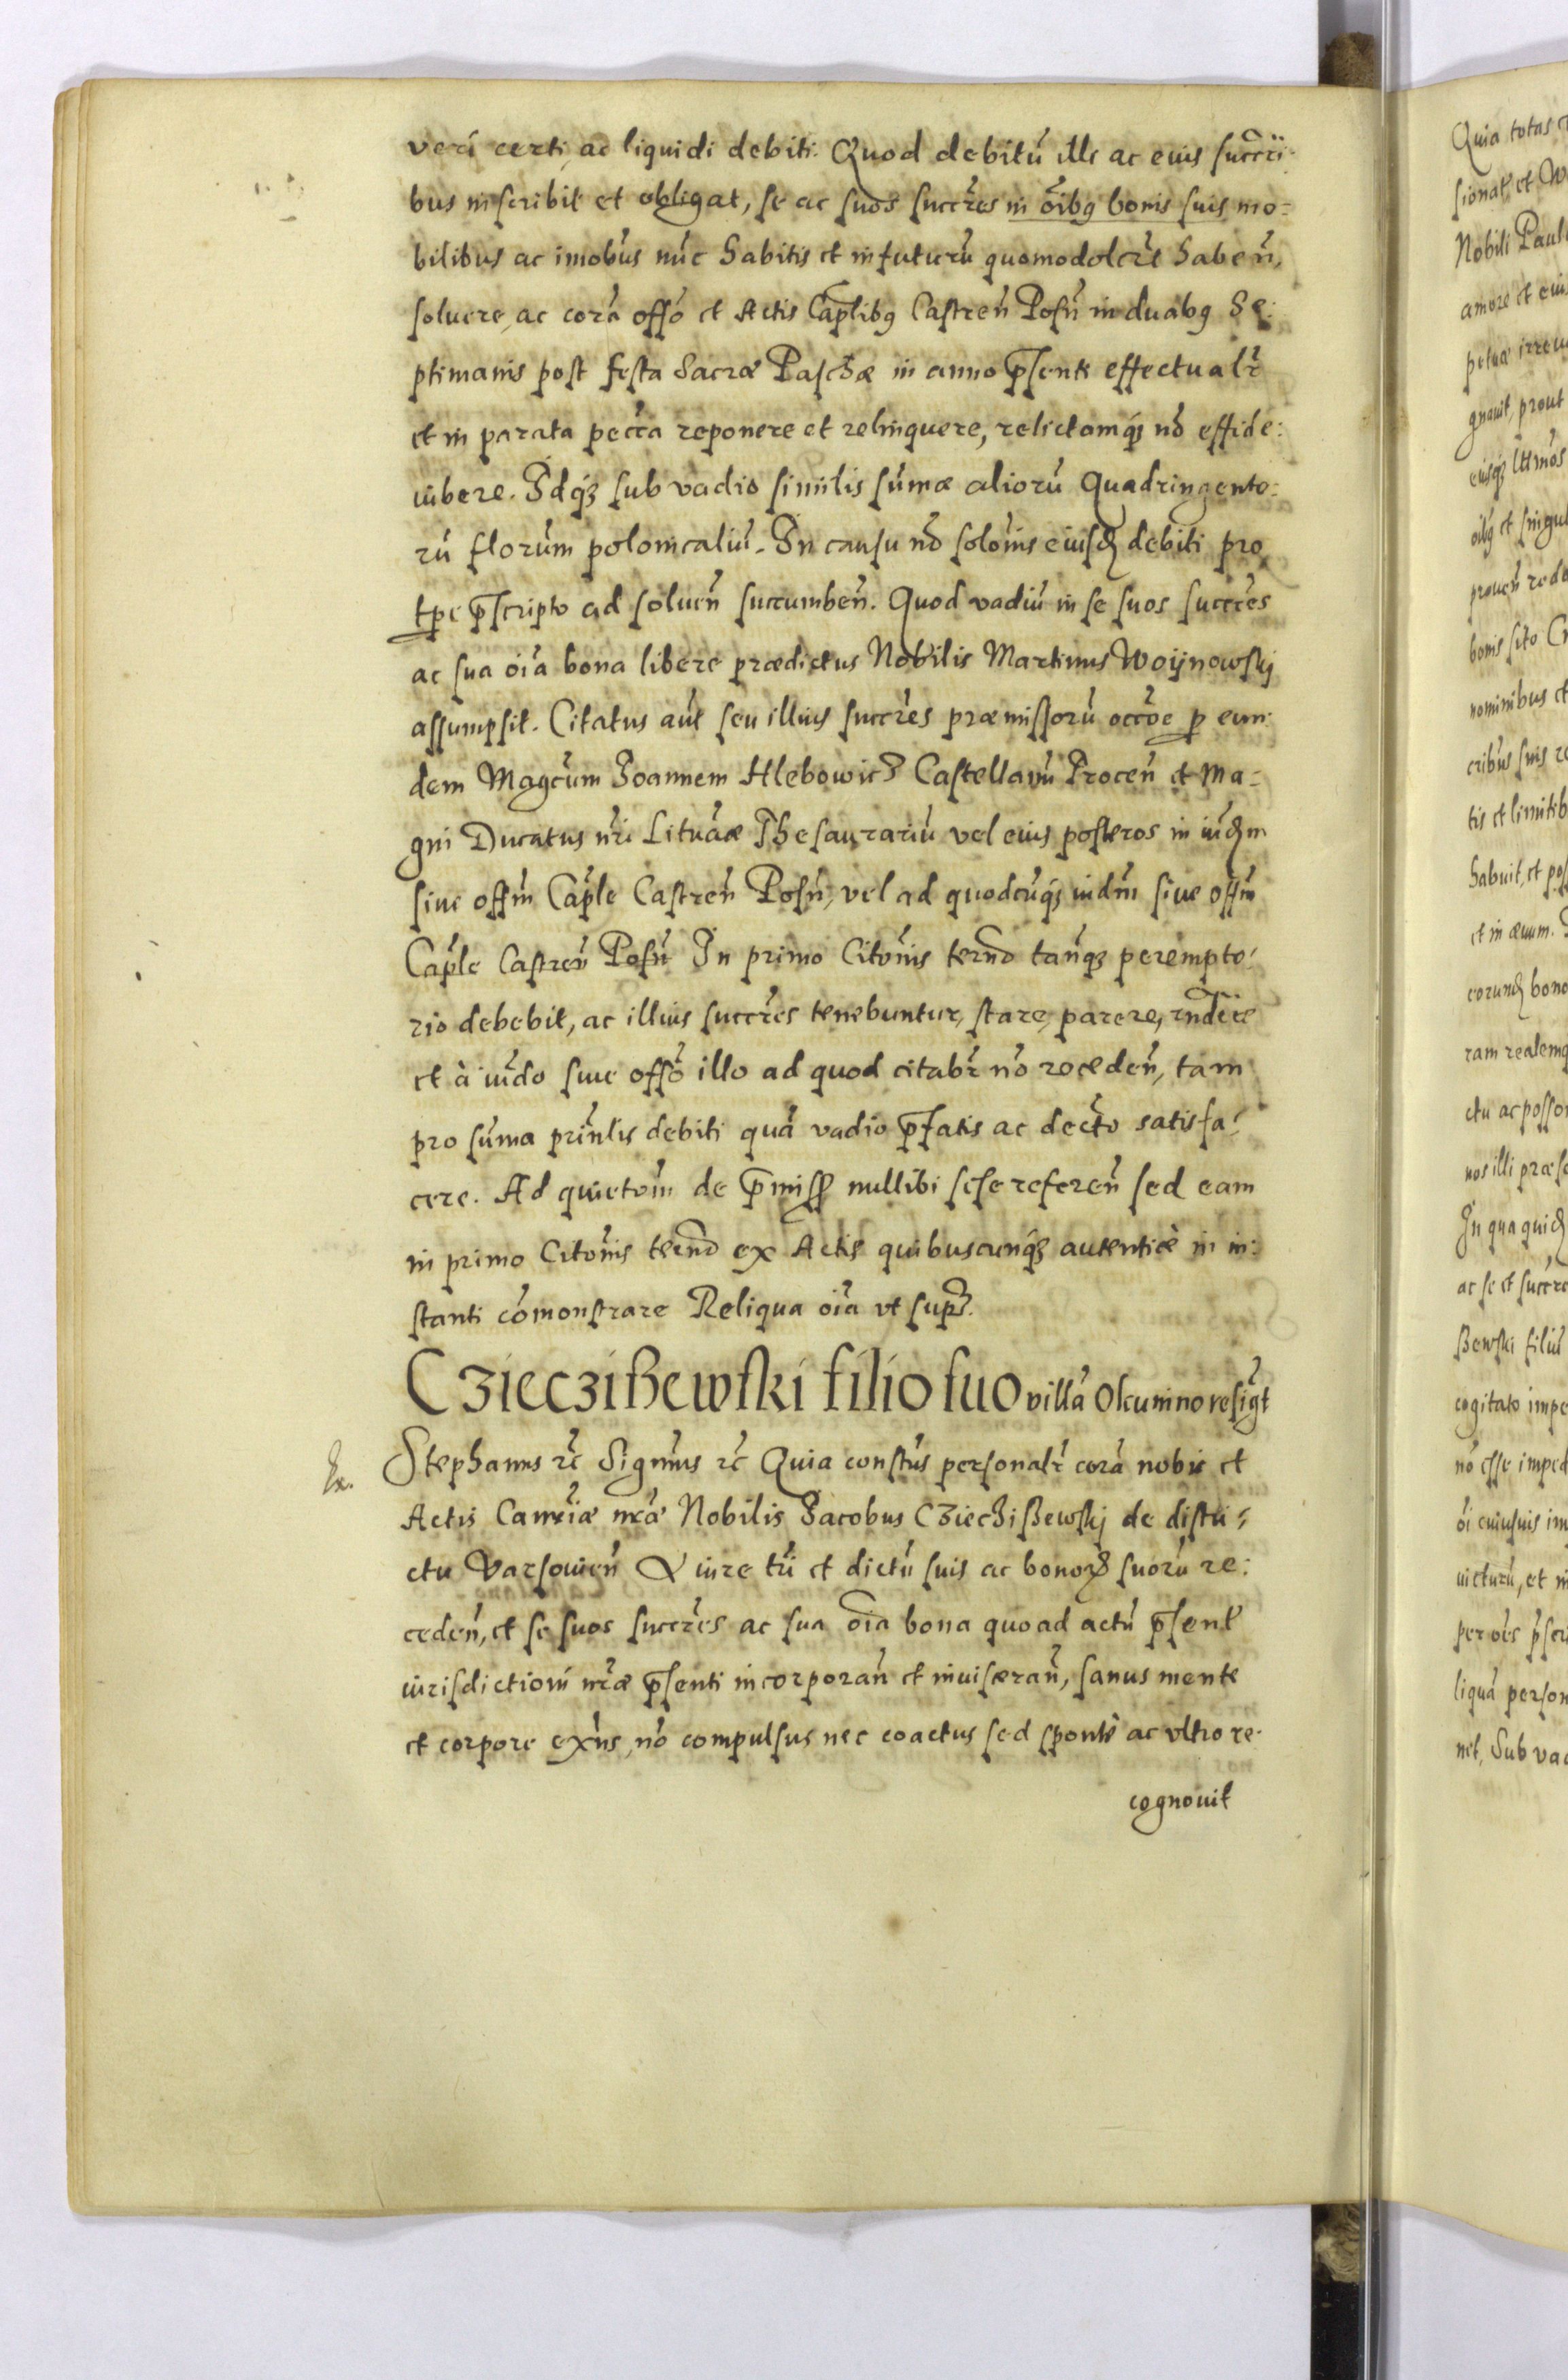 veri certi ac liquidi debiti. Quod debitũ illi ac eius succri-
bus inscribit et obligat, se ac suos succres in oibq bonis suis mo=
bilibus ac imobus nũc habitis et in futurũ quomodolcrt haben̄,
soluere, ac corã offo et Actis Caplibq Castren̄ Posn̄ in duabq Se:
ptimanis post festa Sacræ Paschæ in anno p̄senti effectualr
et in parata pecc̃a reponere et relinquere, relictamq̃ nõ effide:
iubere. Idq̃ sub vadio similis sũmæ aliorũ Quadringento:
rũ florum polonicaliũ. In causu nõ solõnis eiusd debiti pro
tp̱e p̄scripto ad soluen̄ succumben̄. Quod vadiũ in se suos succres
ac sua oĩa bona libere prædictus Nobilis Martinus Woijnowskj
assumpsit. Citatus aut̃ seu illius succres præmissorũ occõe p̱ eun:
dem Magcum Joannem Hlebowicz Castellanũ Trocen̄ et Ma=
gni Ducatus nri Lituaæ Thesaurariũ vel eius posteros in iudm
siue offm Caple Castren̄ Posn̄, vel ad quodcũq̃ iudm siue offm
Caple Castren̄ Posn̄ In primo Citõnis termo tanq̃ perempto=
rio debebit, ac illius succres tenebuntur, stare, parere, rndere
et à iudo siue offo illo ad quod citabr nõ receden̄, tam
pro sũma prinlis debiti quã vadio p̄fatis ac decto satisfa=
cere. Ad quietõm de p̄miss nullibi sese referen̄ sed eam
in primo Citõnis termo ex Actis quibuscunq̃ autenticè in in:
stanti cõmonstrare Reliqua oĩa vt supr.
Czieczißewski filio suo villã Okunino resigt
Ex.
Stephanus rc Signmus rc Quia constus personalr corã nobis et
Actis Canriæ nræ Nobilis Jacobus Cziechißewskj de distri=
ctu Varsouien̄ A iure tri et dictu suis ac bonor suorũ re:
ceden̄, et se suos succres ac sua oĩa bona quoad actũ p̄sent
iurisdictioni nræ p̄senti incorporan̄ et inuisceran̄, sanus mente
et corpore exns, nõ compulsus nec coactus sed spontè ac vltro re-
cognouit
Quia totas
sionat et W
Nobili Paul
amore et eiu
petuæ irreu
gnauit, prout
oibq et singul
prouen̄ redd
bonis sito
nominibus et
cribus suis re
tis et limitib
habuit, et pos
et in æuum.
eorund bono
ram realemq
ctu ac posso
nos illi præse
In qua quid
ac se et succre
ßewski filiũ
cogitato impe
nõ esse imped
oi cuiusuis im
uicturũ, et in
per oes p̄scr
liquã person
net, Sub vad